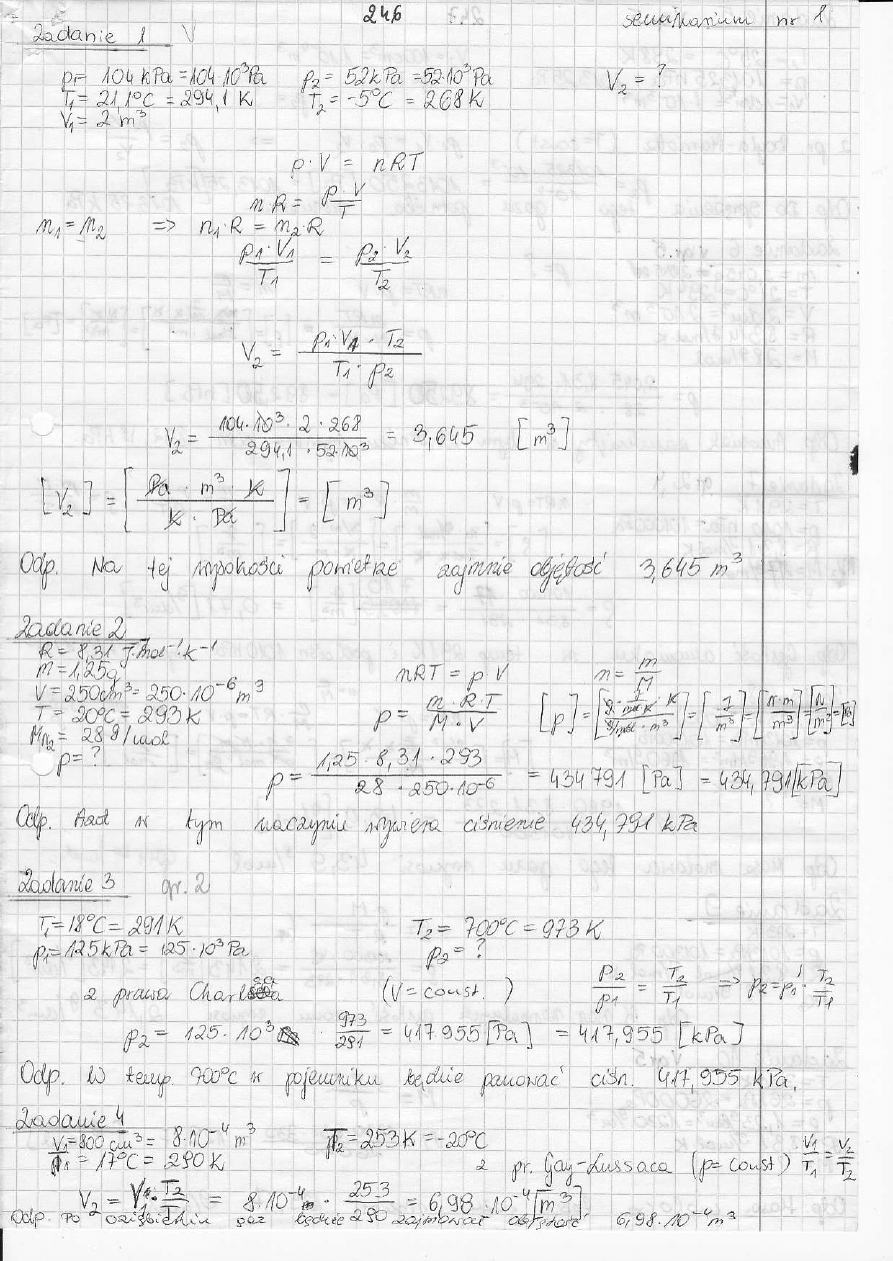 246
seminarium nr 1
Zadanie 1 V
p1= 104 kPa = 104·10³Pa p2 = 52kPa = 52·10³Pa V2 = ?
T1 = 21,1°C = 294,1 K T2 = -5°C = 268 K
V1 = 2 m³
p·V = nRT
nR = p·V/T
n1 = n2 => n1·R = n2·R
p1·V1/T1 = p2·V2/T2
V2 = p1·V1·T2/T1·p2
V2 = 104·10³·2·268/294,1·52·10³ = 3,645 [m³]
[V2] = [Pa·m³·K/K·Pa] = [m³]
Odp. Na tej wysokości powietrze zajmnie objętość 3,645 m³
Zadanie 2
R = 8,31 J·mol⁻¹·K⁻¹
m = 1,25g nRT = p·V n = m/M
V = 250cm³ = 250·10⁻⁶ m³
T = 20°C = 293 K p = m·R·T/M·V [p] = [g·J/mol·K·K/g/mol·m³] = [J/m³] = [N·m/m³] = [N/m²] = [Pa]
MN2 = 28 g/mol
p = ?
p = 1,25·8,31·293/28·250·10⁻⁶ = 434791 [Pa] = 434,791[kPa]
Odp. Azot w tym naczyniu wywiera ciśnienie 434,791 kPa
Zadanie 3 gr. 2
T1 = 18°C = 291 K T2 = 700°C = 973 K
p1 = 125kPa = 125·10³Pa p2 = ?
z prawa Charlesa (V = const.) p2/p1 = T2/T1 => p2 = p1·T2/T1
p2 = 125·10³·973/291 = 417955 [Pa] = 417,955 [kPa]
Odp. W temp. 700°C w pojemniku będzie panować ciśn. 417,955 kPa.
Zadanie 4
V1 = 800 cm³ = 8·10⁻⁴ m³ T2 = 253K = -20°C
T1 = 17°C = 290 K z pr. Gay-Lussaca (p = const) V1/T1 = V2/T2
V2 = V1·T2/T1 = 8·10⁻⁴·253/290 = 6,98·10⁻⁴ [m³]
Odp. Po oziębieniu gaz będzie zajmował objętość 6,98·10⁻⁴ m³